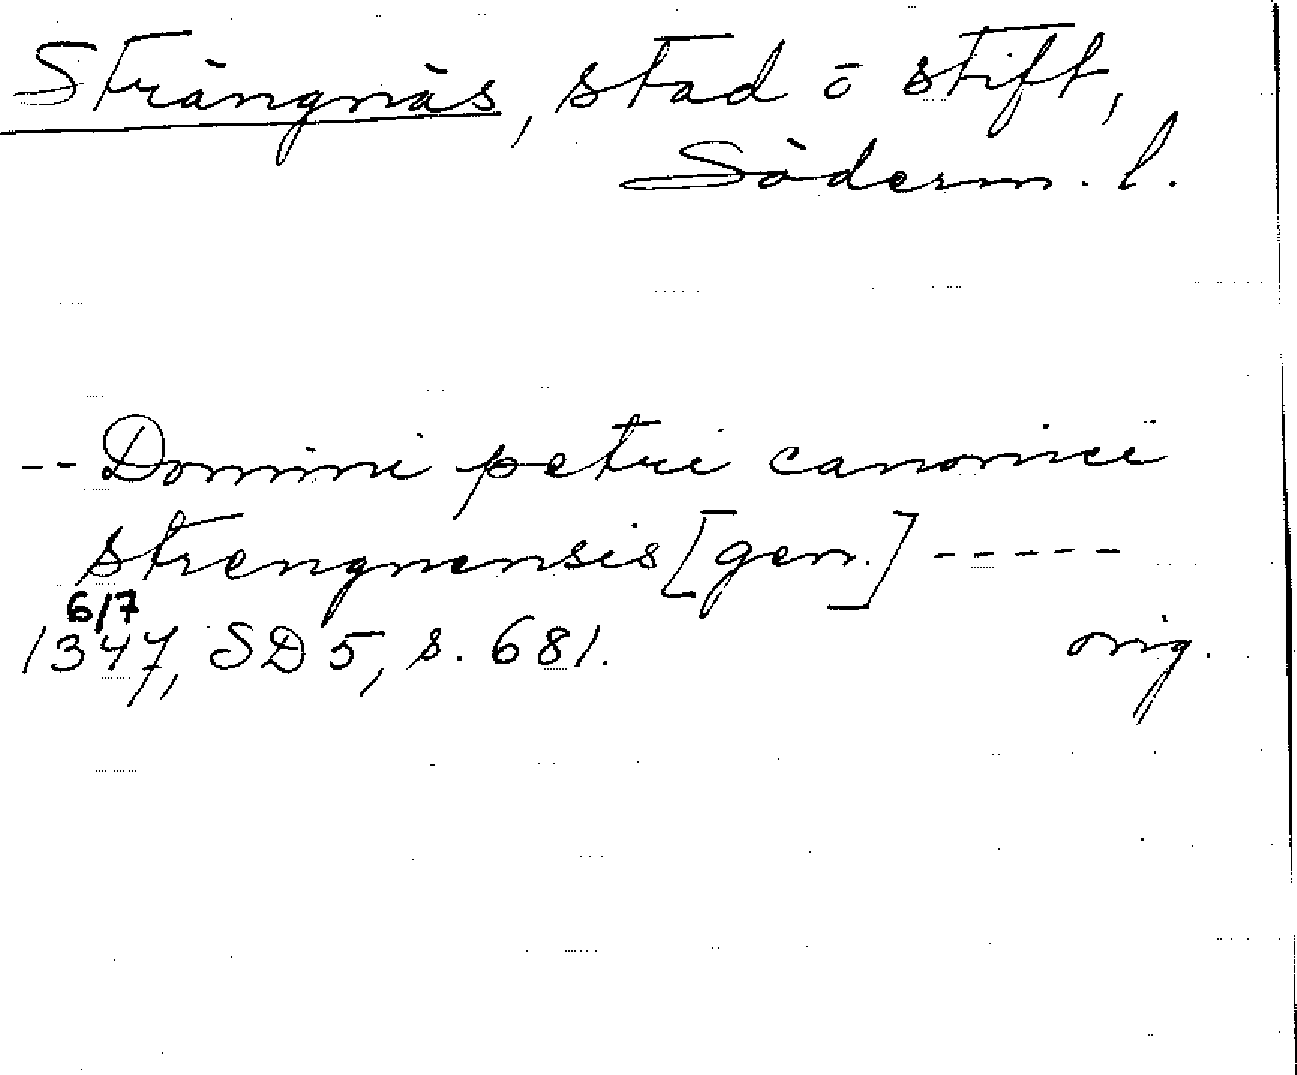 Strängnäs, stad o stift,
Söderm. l.
-- Domini petri canonici
strengnensis [gen.] -----
6/7
1347, SD 5, s. 681. orig.